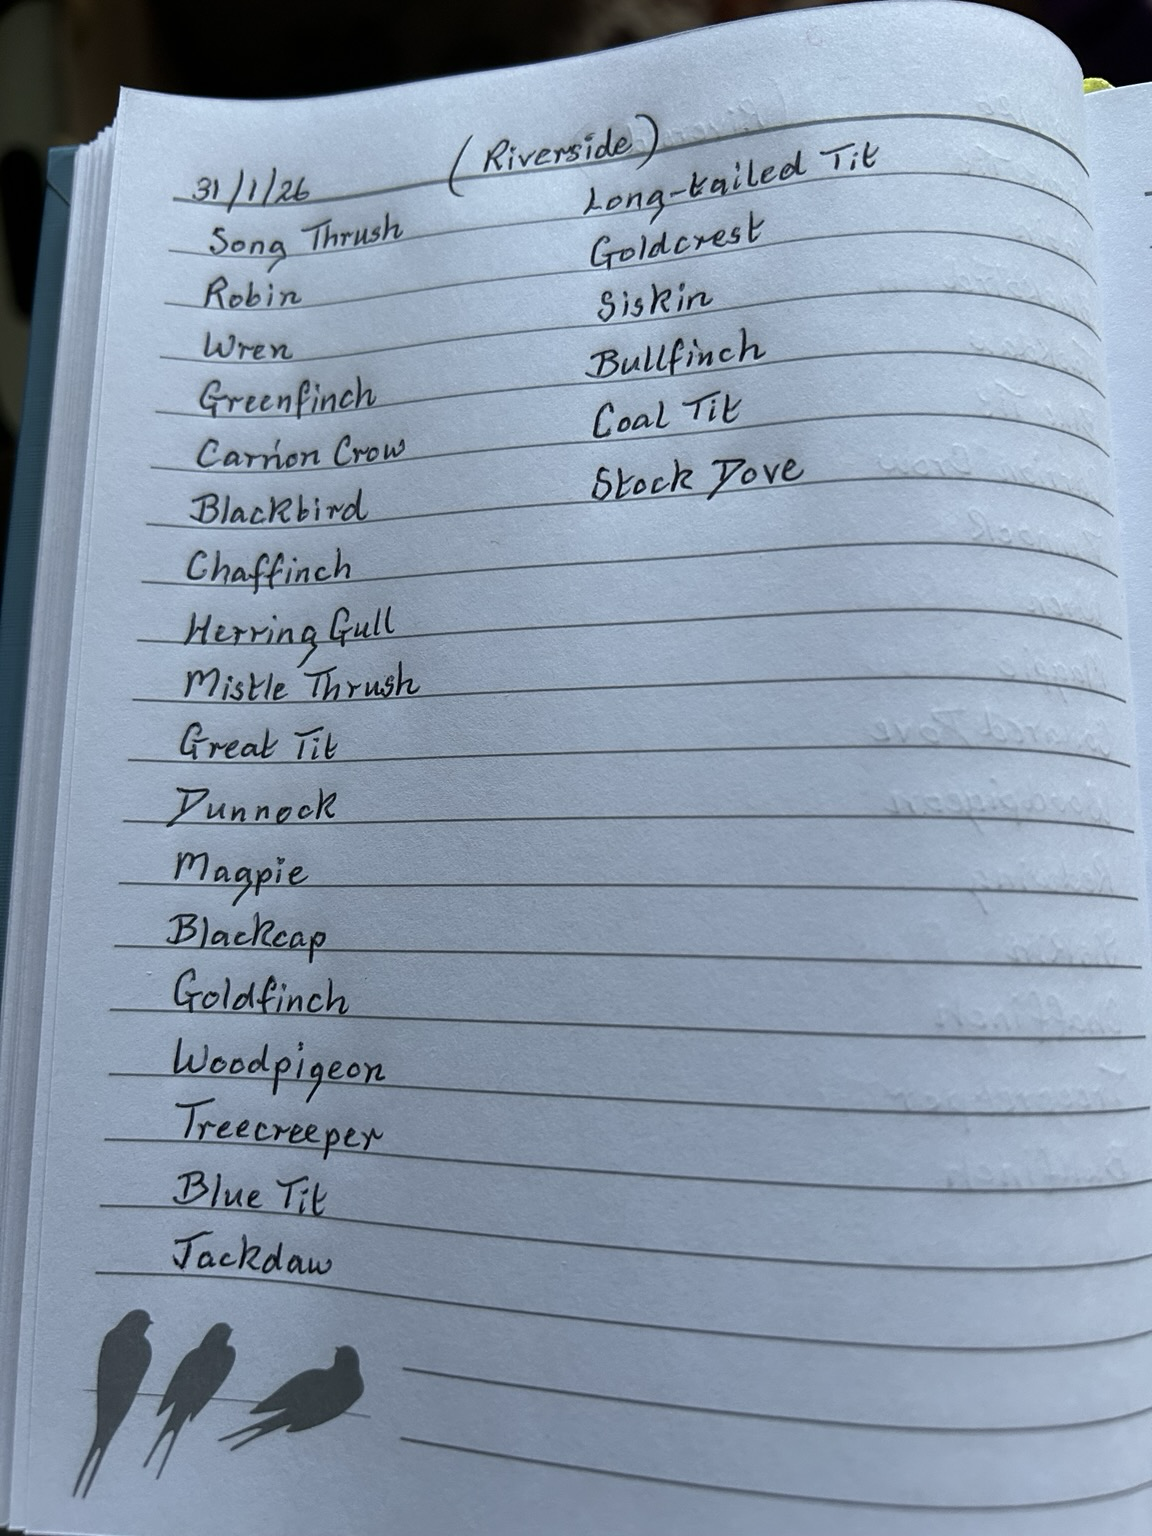 31/1/26
(Riverside)
Song Thrush
Robin
Wren
Greenfinch
Carrion Crow
Blackbird
Chaffinch
Herring Gull
Mistle Thrush
Great Tit
Dunnock
Magpie
Blackcap
Goldfinch
Woodpigeon
Treecreeper
Blue Tit
Jackdaw
Long-tailed Tit
Goldcrest
Siskin
Bullfinch
Coal Tit
Stock Dove